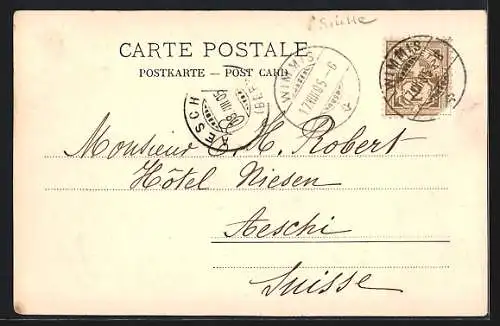 Suisse
CARTE POSTALE
POSTKARTE — POST CARD
WIMMIS
WIMMIS
17.VIII.05-6
AESCHI
18.VIII.05
(BERN)
Monsieur E. H. Robert
Hôtel Niesen
Aeschi
Suisse